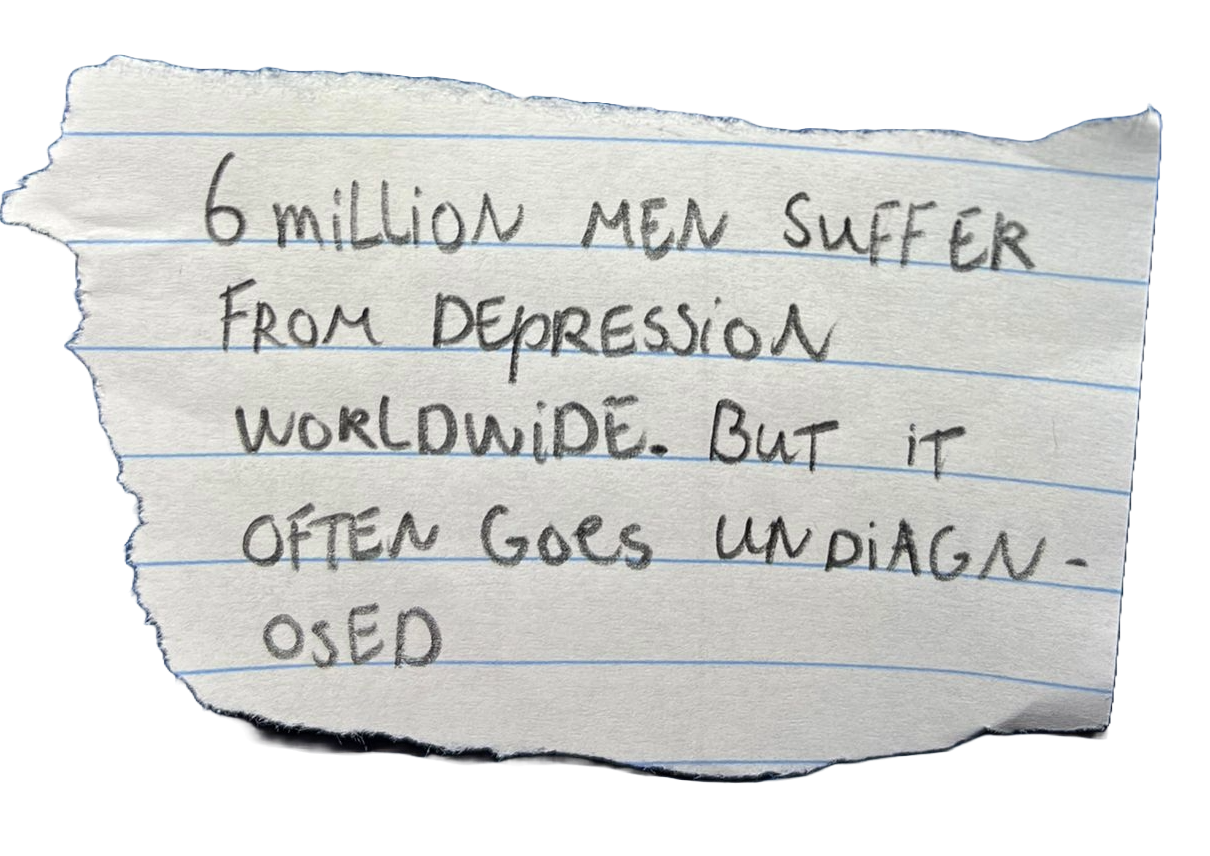 6 million MEN SUFFER
FROM DEPRESSION
WORLDWIDE. BUT IT
OFTEN GOES UNDIAGN-
OSED